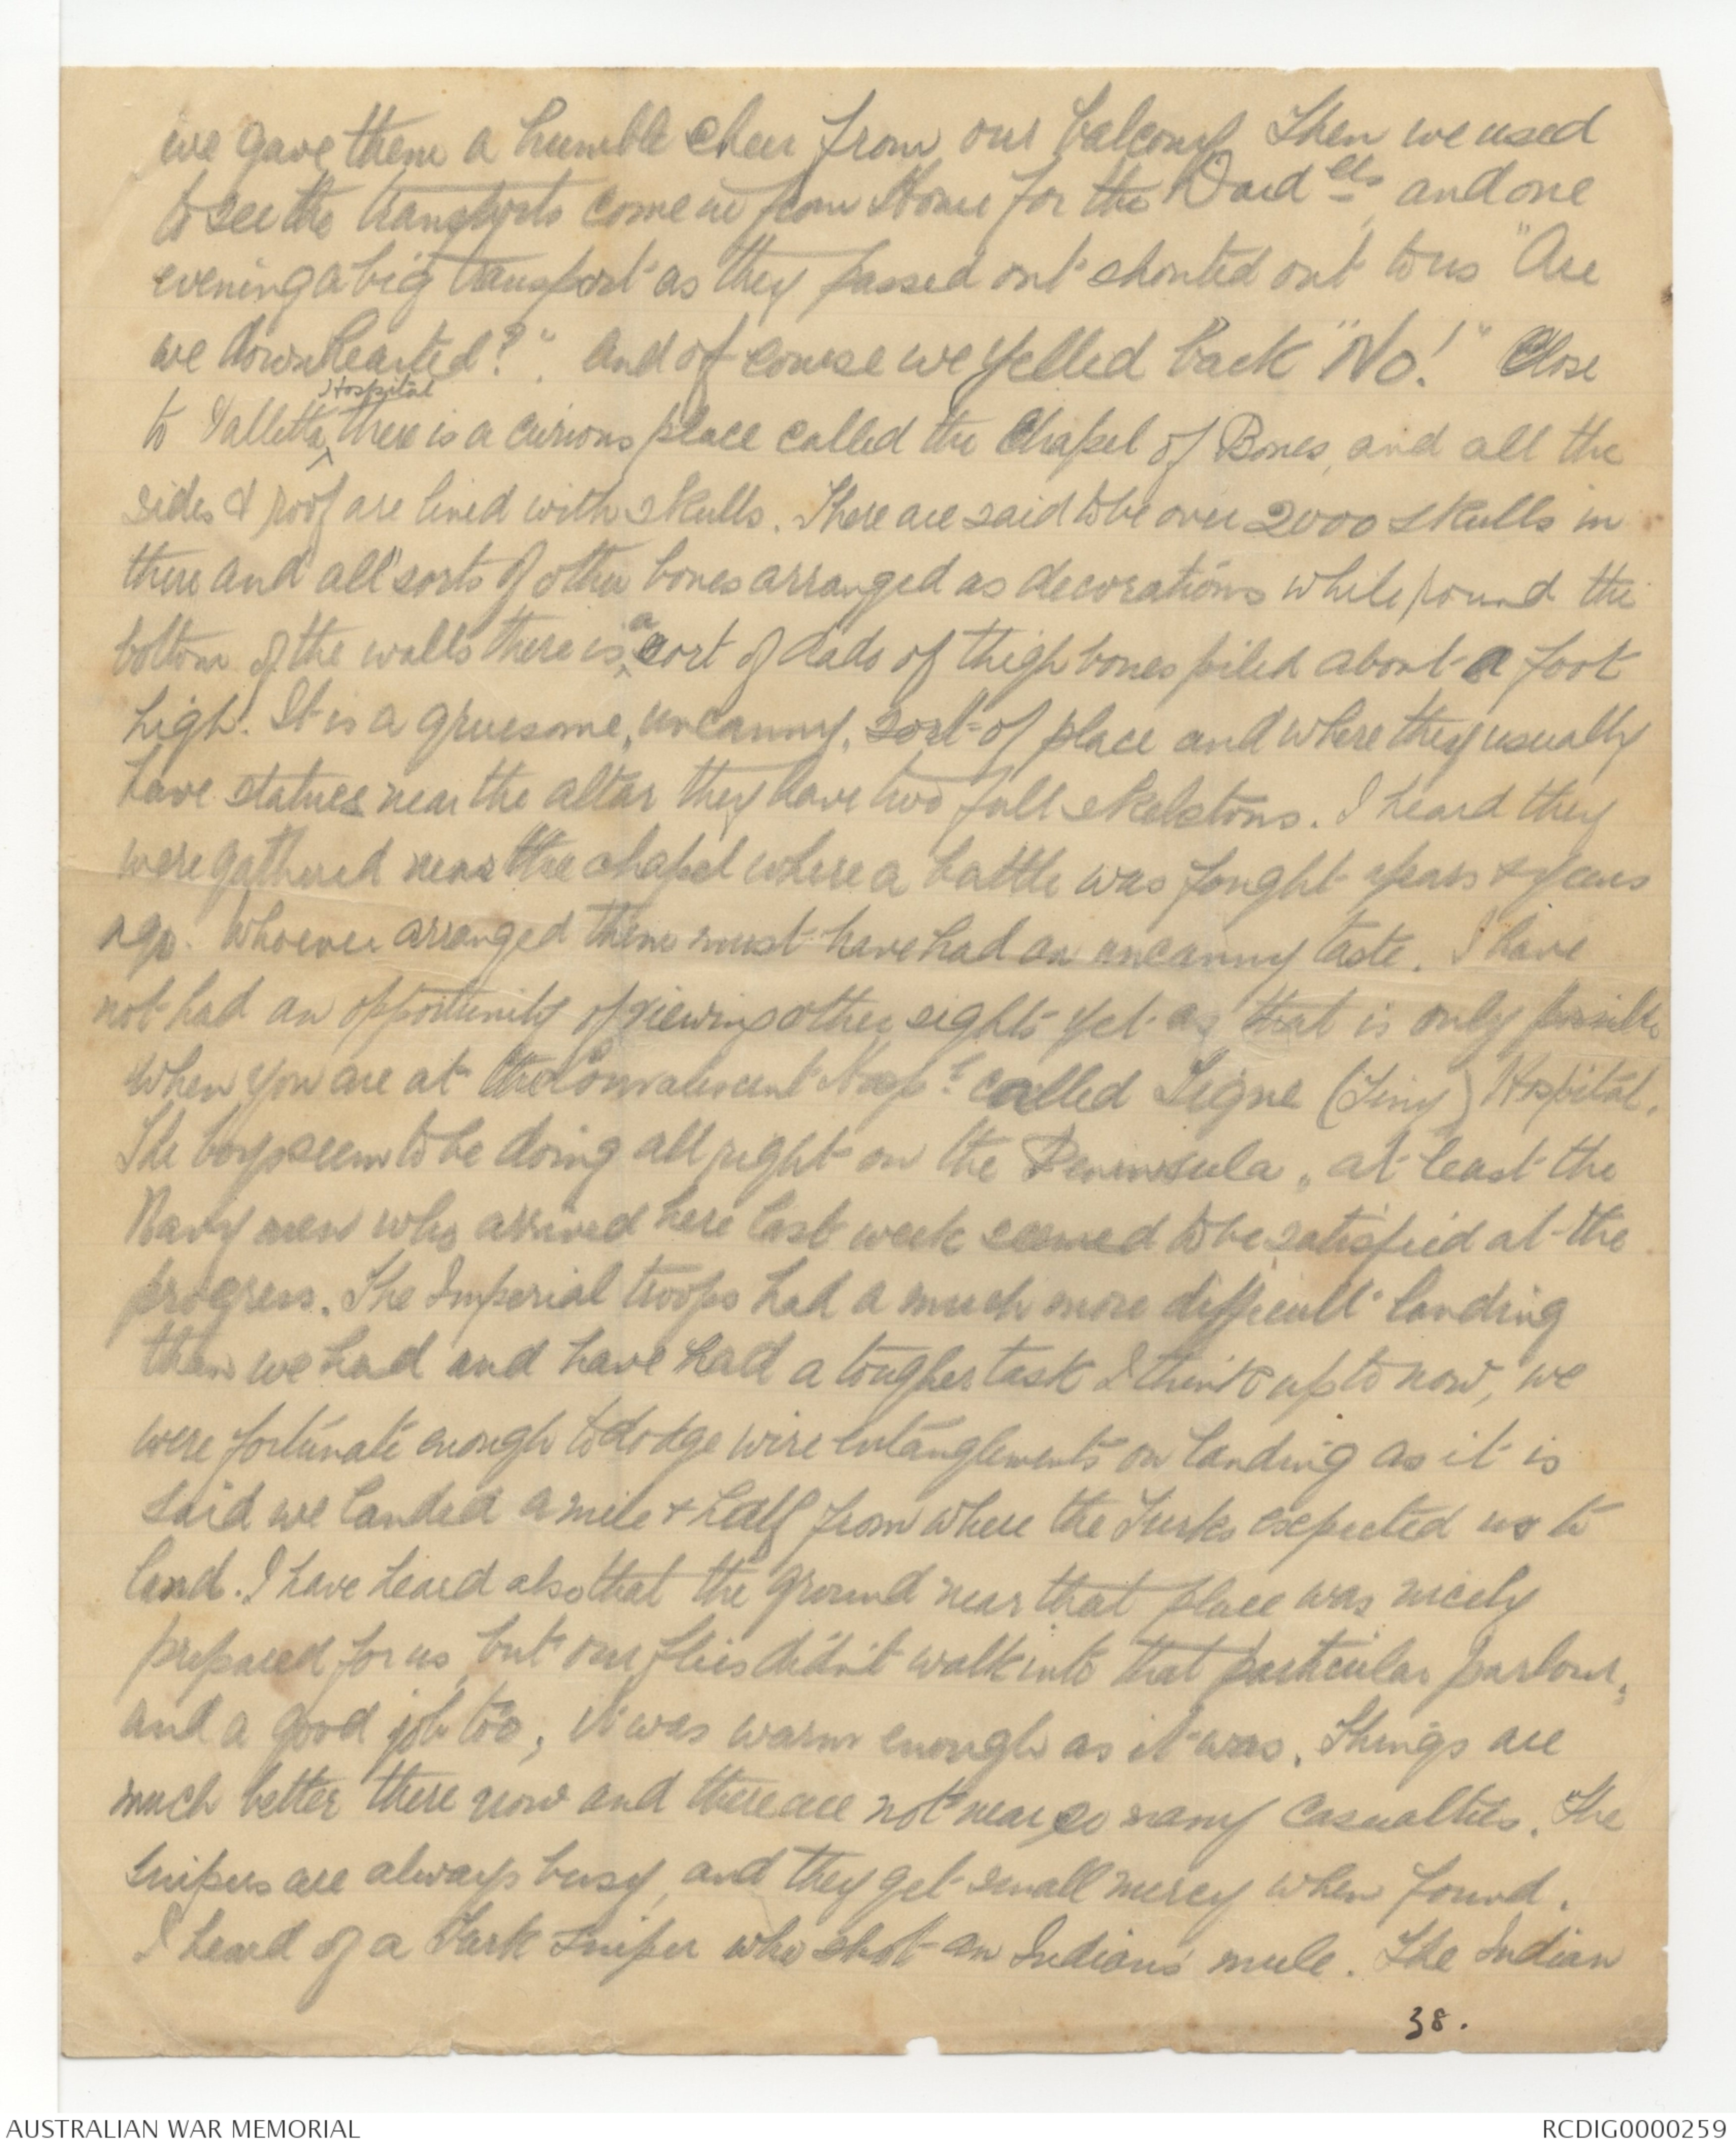 we gave them a humble cheer from our balcony. Then we used
to see the transports come in from Home for the Dard els, and one
evening a big transport as they passed out shouted out to us "Are
we downhearted?". And of course we yelled back "No!" Close
Hospital
to Valletta ^ there is a curious place called the Chapel of Bones, and all the
sides & roof are lined with skulls. There are said to be over 2000 skulls in
there and all sorts of other bones arranged as decorations while round the
bottom of the walls there is ^a sort of dado of thigh bones piled about a foot
high. It is a gruesome, uncanny, sort of place and where they usually
have statues near the altar they have two full skeletons. I heard they
were gathered near the chapel where a battle was fought years & years
ago. Whoever arranged them must have had an uncanny taste. I have
not had an opportunity of viewing other sights yet as that is only possible
when you are at the Convalescent Hosp.l called Tigne (Tiny) Hospital.
The boys seem to be doing all right on the Peninsula, at least the
Navy men who arrived here last week seemed to be satisfied at the
progress. The Imperial troops had a much more difficult landing
than we had and have had a tougher task I think up to now, we
were fortunate enough to dodge wire entanglements on landing as it is
said we landed a mile & half from where the Turks expected us to
land. I have heard also that the ground near that place was nicely
prepared for us, but our flies didn't walk into that particular parlour,
and a good job too, it was warm enough as it was. Things are
much better there now and there are not near so many casualties. The
snipers are always busy, and they get small mercy when found.
I heard of a Turk sniper who shot an Indian's mule. The Indian
38.
AUSTRALIAN WAR MEMORIAL
RCDIG0000259